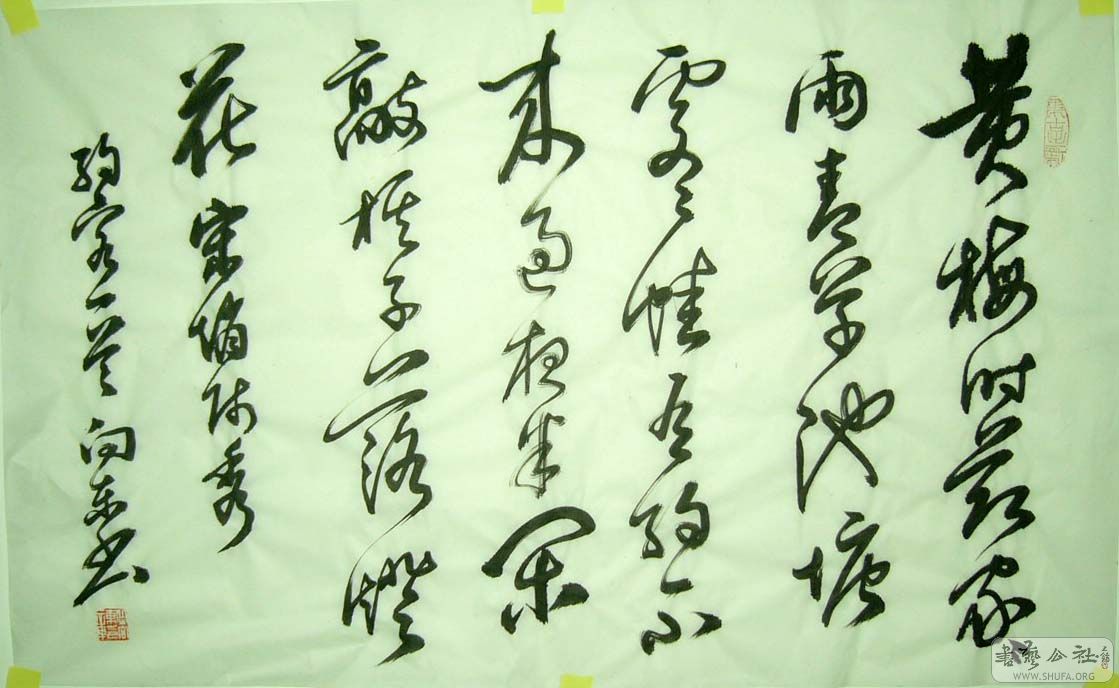 黄梅时节家
雨青草池塘
处々蛙有约不
来过夜半闲
敲棋子落灯
花 宋赵师秀
约客一首 向东书
書藝公社
WWW.SHUFA.ORG